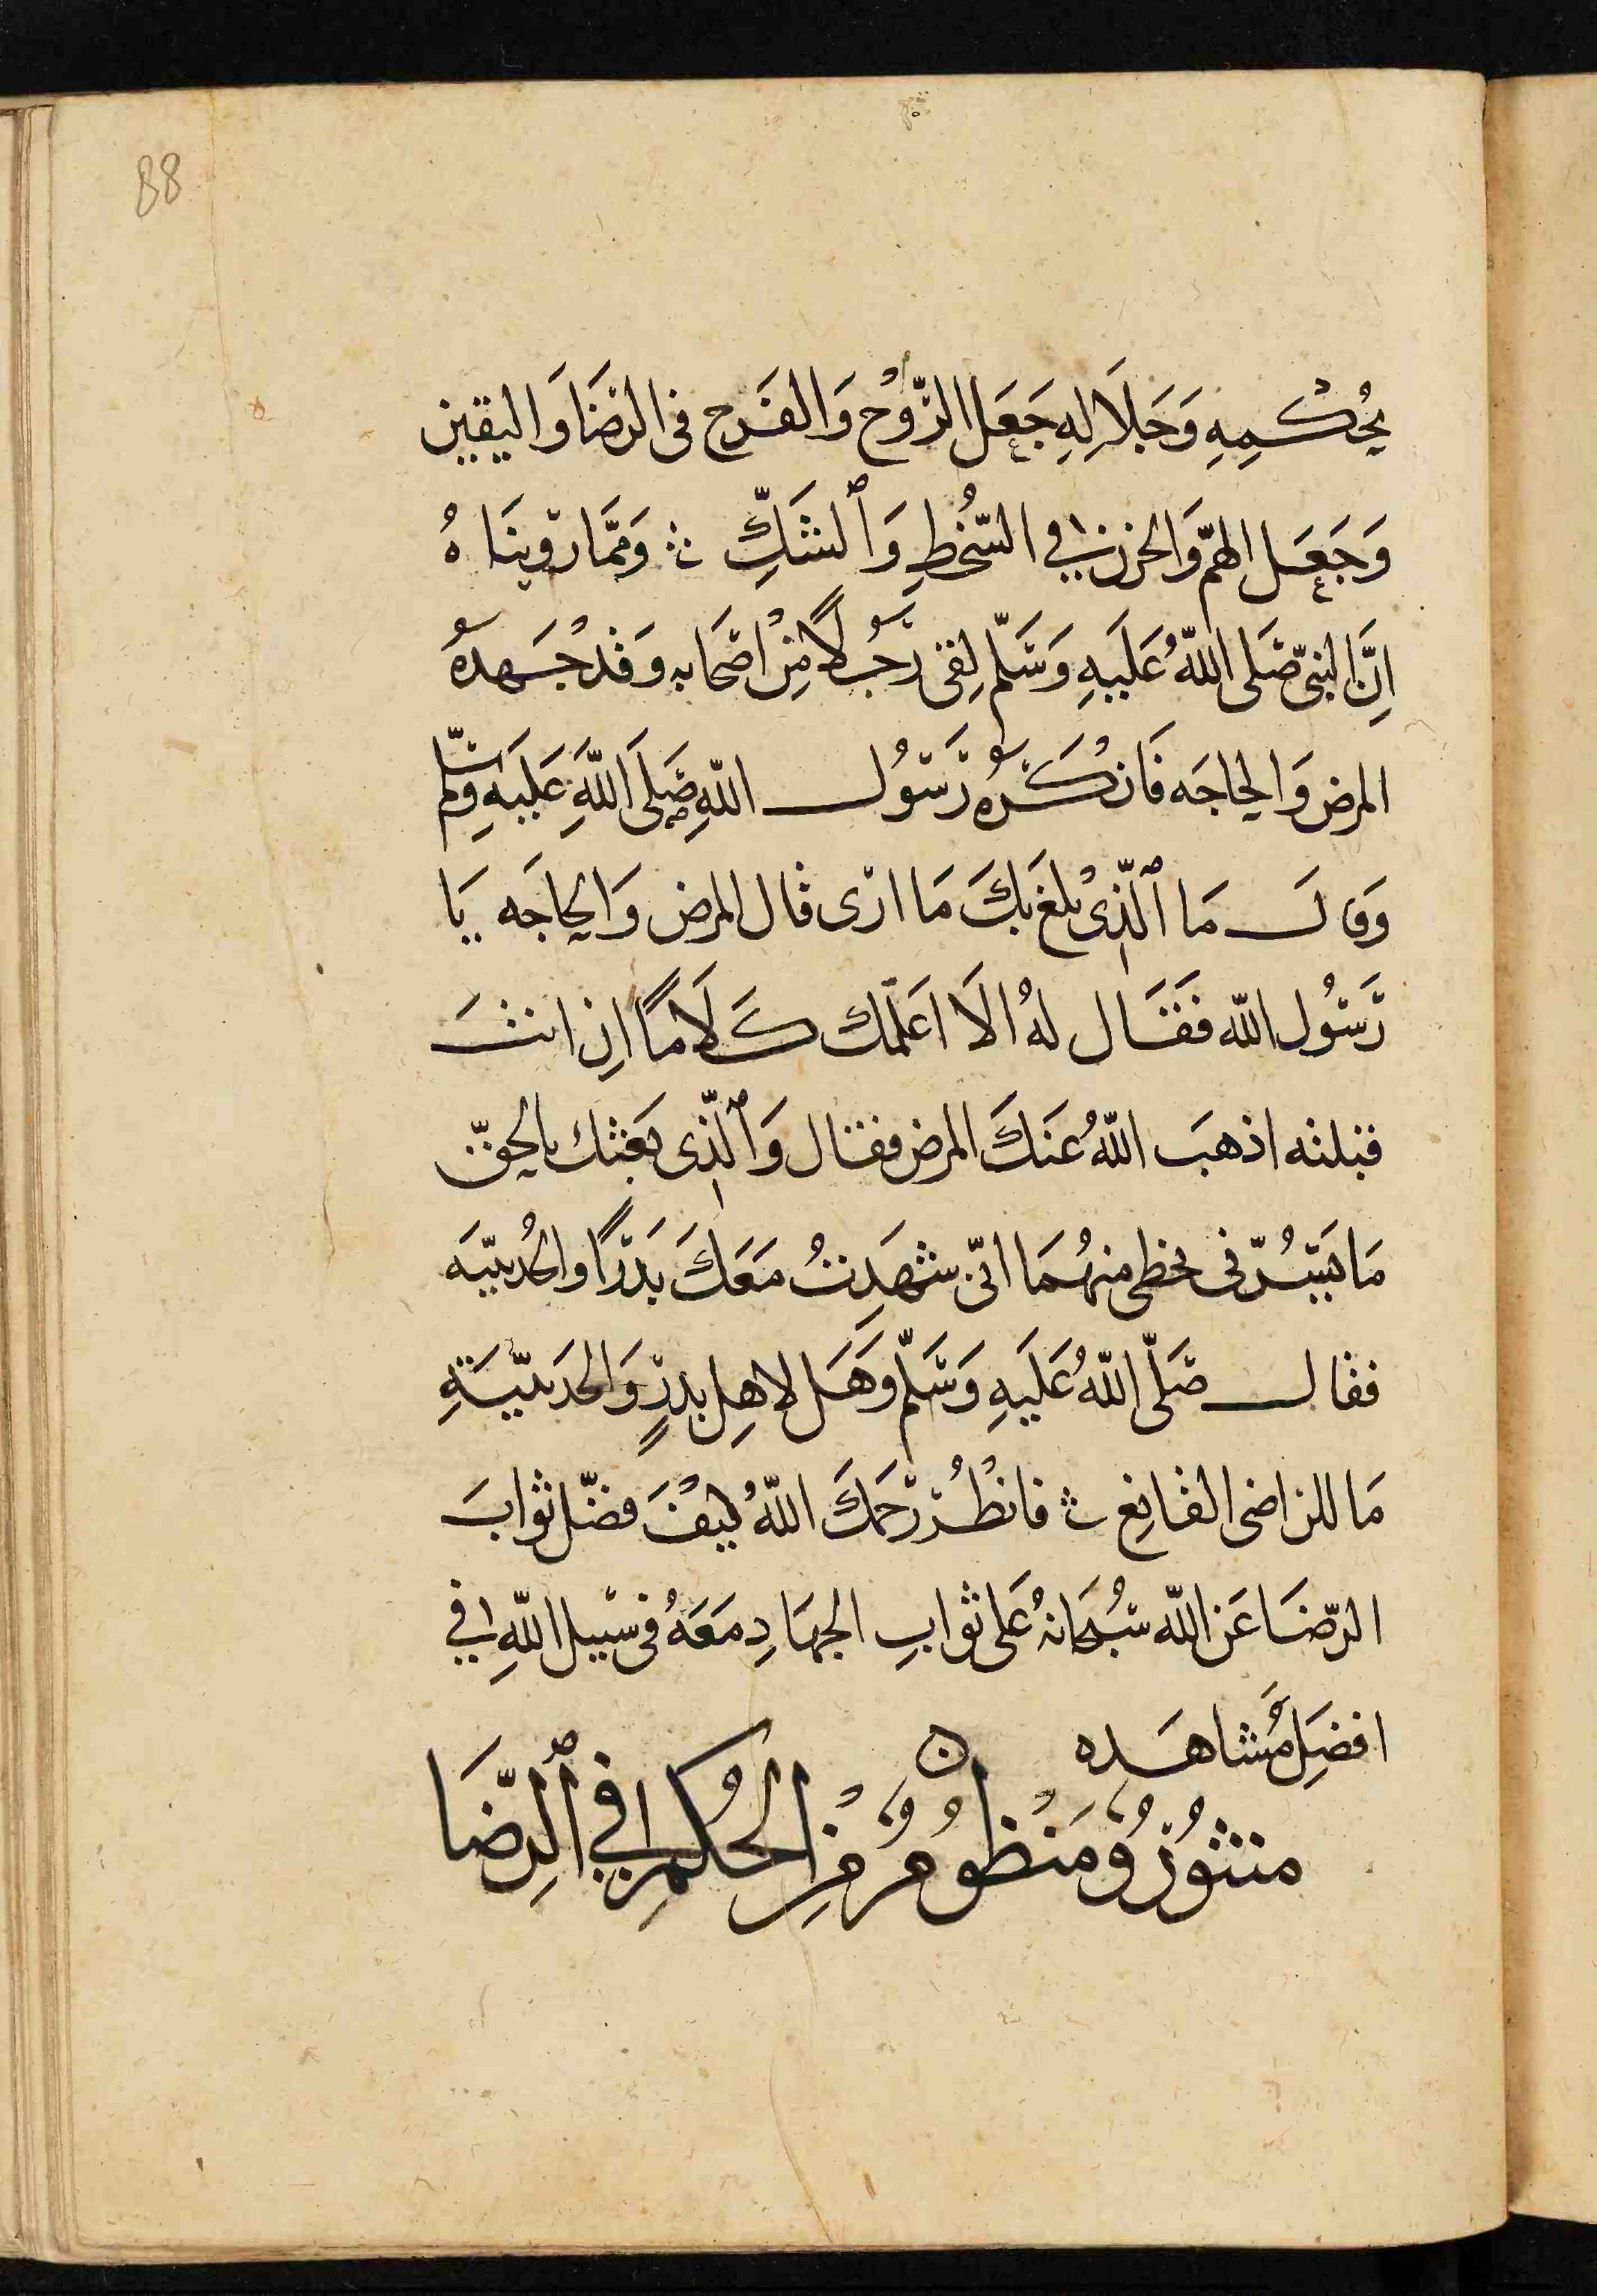 88
بحُكْمِهِ وَجَلَالِهِ جَعَل الرَّوْح وَالفَرح فى الرّضَا وَاليقين
وَجَعَل الهمّ وَالحزن في السُّخطِ وَٱلشَكِّ ۞ وَممَّا روّينَاهُ
اِنَّ النبىّ صَلى اللّهُ عَلَيهِ وَسَلّم لِقى رَجُلًا مِنْ اصْحَابه وَقدْ جَهدهُ
المرض وَالحاجَه فَانْكَرهُ رَسُول اللّهِ صَلَى اللَّهِ عَلَيهِ وسَلّم
وَقال مَا ٱلّذى بلغ بكَ مَا ارى قال المرض وَالحاجَه يَا
رَسُول اللّه فقَال لهُ الَا اعَلّمك كَلَامًا اِن انتَ
قبلته اذهبَ اللّهُ عَنكَ المرض فقال وَٱلّذى بَعثك بالحقّ
مَا يَسُرّنى بحظى منهُمَا انّى شهَدتُ مَعَكَ بَدْرًا والحُديبيَه
فقال صَلّى اللّهُ عَلَيهِ وَسَلّم وَهَل لاهِل بدرٍ وَالحَديبيَةِ
مَا للراضى القانِع ۞ فانظُرْ رَحمكَ اللّهُ كيْفَ فضّل ثوابَ
الرّضَا عَن اللّه سُبْحَانهُ عَلى ثوابِ الجهَادِ مَعَهُ فى سَبيل اللّهِ في
افضَلِ مُشاهَده ۞
منثُورٌ وَمَنْظومٌ مِنَ الحُكْمِ في ٱلرِّضَا